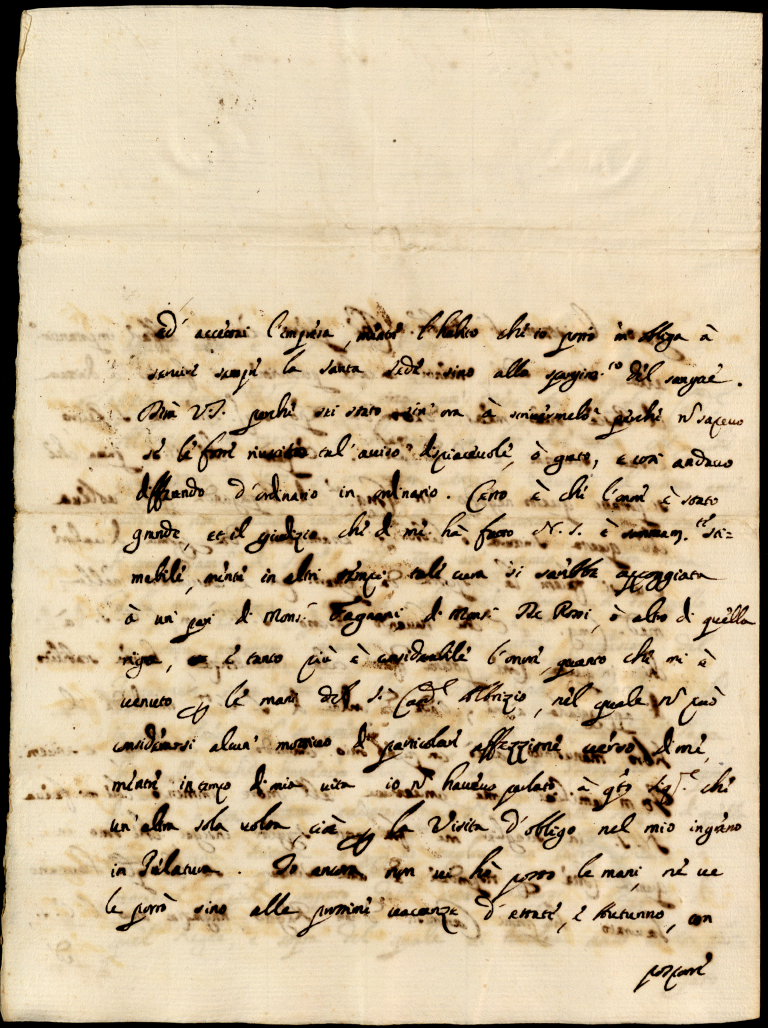 ad' accettar l'impresa, mentre l'habito che io porto m'obliga à
servire sempre la Santa Sede sino alla spargim.to del sangue.
Dirà V.S. perche sei stato sin' ora à scrivermelo? perche nō sapevo
se le fosse riuscito tal' aviso dispiacevole, ò grato, e così andavo
differendo d'ordinario in ordinario. Certo è che l'onore è stato
grande, et il giudizio che di me hà fatto N.S. è sommam.te sti=
mabile, mentre in altri tempi tale cura si sarebbe appoggiata
à un' pari di Mons.r Fagnani di Mons.r De Rossi, ò altro di quella
riga, e tanto più è considerabile l'onore, quanto che mi è
venuto p le mani del S.r Card.l Albrizio, nel quale nō può
considerarsi alcun' motivo di particolare affezzione verso di me,
mentre in tempo di mia vita io nō havevo parlato à q.sto Sig.re che
un'altra sola volta, cioè p la Visita d'obligo nel mio ingresso
in Prelatura. Io ancora non vi hò posto le mani, nè ve
le porrò sino alle prossime vacanze d'estate, e Autunno, con